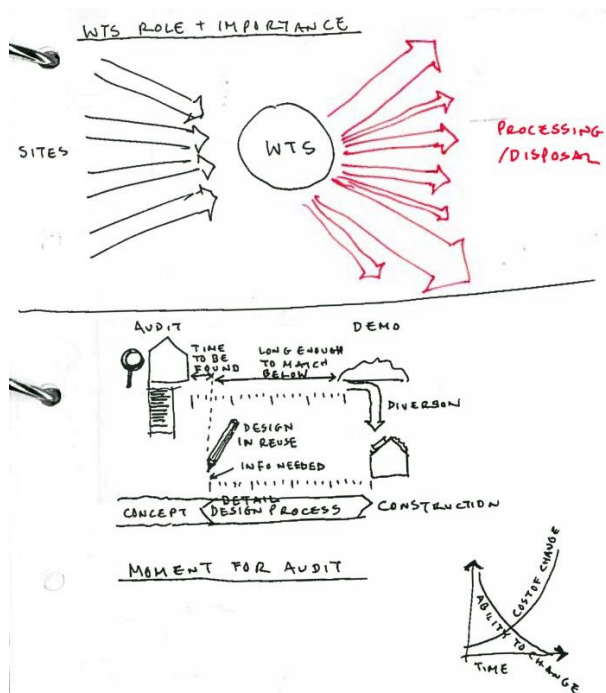 WTS ROLE + IMPORTANCE
SITES
WTS
PROCESSING
/DISPOSAL
AUDIT
TIME
TO BE
FOUND
LONG ENOUGH
TO MATCH
BELOW
DEMO
DIVERSON
DESIGN
IN REUSE
INFO NEEDED
CONCEPT
DETAIL
DESIGN PROCESS
CONSTRUCTION
MOMENT FOR AUDIT
COST OF CHANGE
ABILITY TO CHANGE
TIME